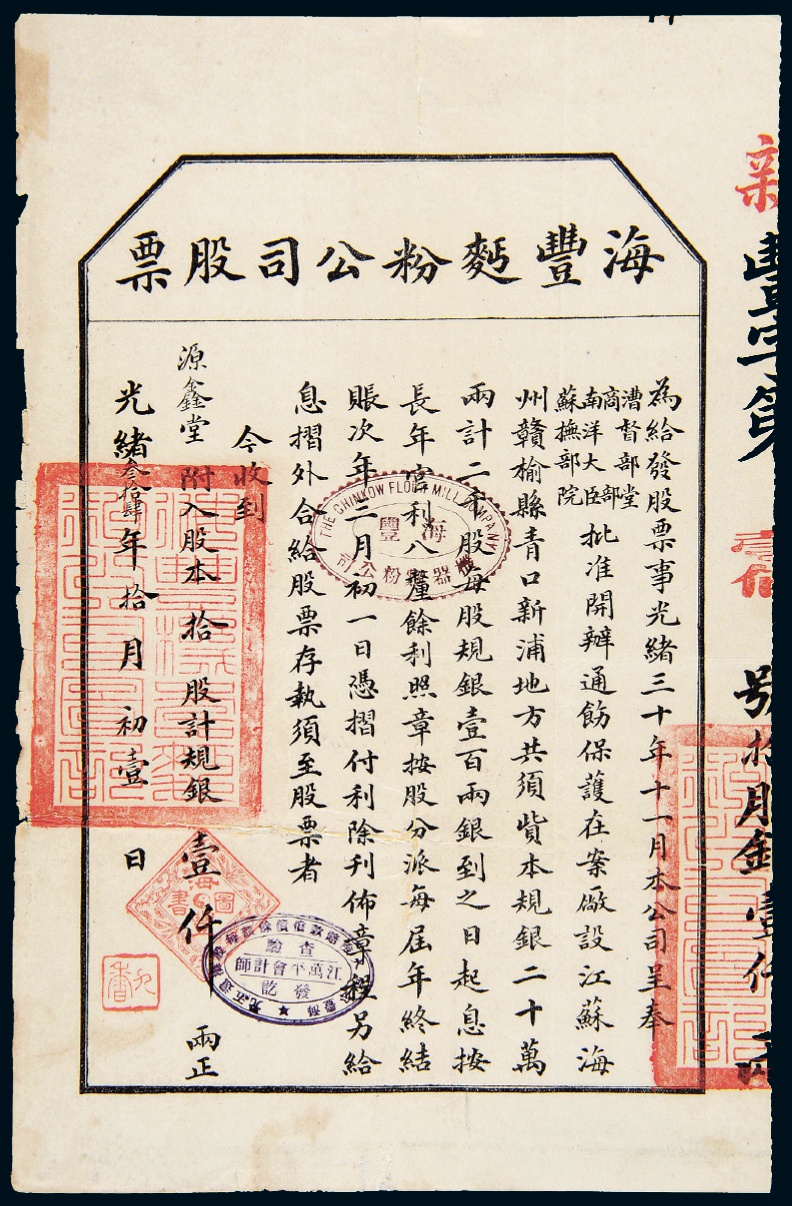 海豐麪粉公司股票
為給發股票事光緒三十年十一月本公司呈奉
漕督部堂
商部
南洋大臣
蘇撫部院
批准開辦通飭保護在案廠設江蘇海
州贛榆縣青口新浦地方共須貲本規銀二十萬
兩計二千股每股規銀壹百兩銀到之日起息按
長年官利八釐餘利照章按股分派每届年終結
賬次年三月初一日憑摺付利除刋佈章程另給
息摺外合給股票存執須至股票者
今收到
源鑫堂附入股本拾股計規銀壹仟兩正
光緒叁拾肆年拾月初壹日
THE CHINKOW FLOUR MILL COMPANY
海豐
機器麪粉公司
查驗
江萬平會計師
發訖
海
圖書
豐字第
號拾股銀壹仟兩